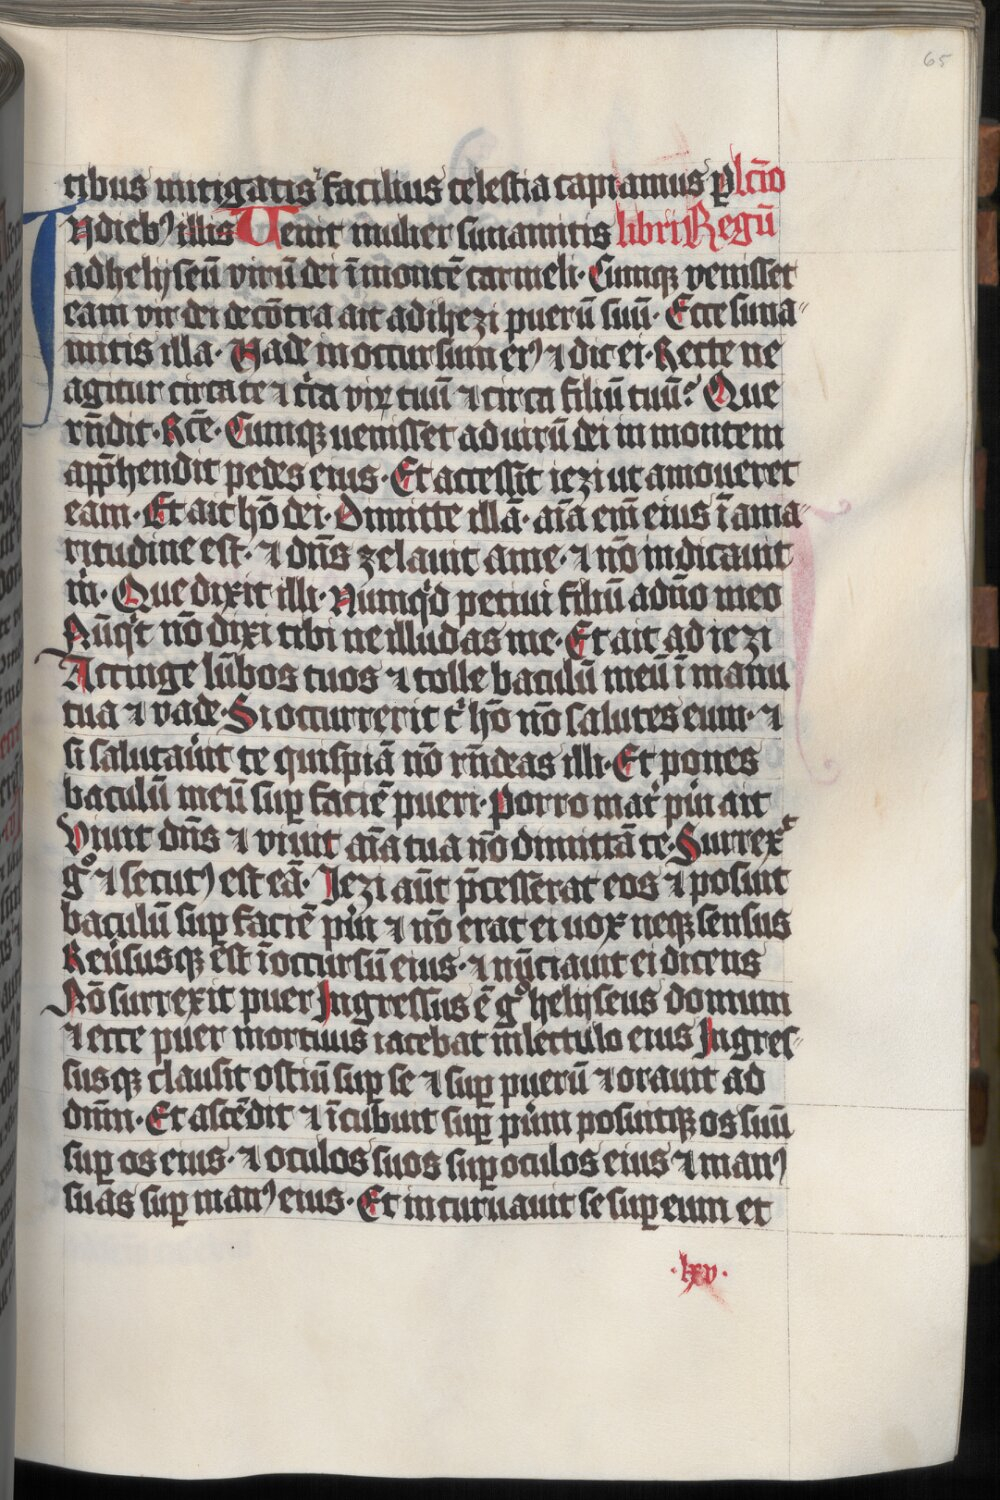 65
tibus mitigatis facilius celestia capiamus ꝑ lc̄io
Ndiebꝰ illis Venit mulier sunamitis libri Regū
ad helyseū virū dei ī montē carmeli· Cumqꝫ venisset
eam vir dei de cōtra ait ad ihezi puerū suū· Ecce suna-
mitis illa· Vade in occursum eiꝰ ⁊ dic ei· Recte ne
agitur circa te ⁊ c̄ca virꝫ tuū ⁊ circa filiū tuū? Que
rn̄dit· Rc̄e· Cumqꝫ uenisset ad uirū dei in montem
app̄hendit pedes eius· Et accessit iezi ut amoueret
eam· Et ait hō dei· Dimitte illā· aīa em̄ eius ī ama-
ritudine est· ⁊ dn̄s zelauit ame· ⁊ nō indicauit
m· Que dixit illi· Numqͥd petiui filiū a dn̄o meo
Nūqͥt nō dixi tibi ne illudas me· Et ait ad iezi
Accinge lūbos tuos ⁊ tolle baculū meū ī manu
tua ⁊ vade· Si occurrerit tͥ hō nō salutes eum· ⁊
si salutaūit te quispiā nō rn̄deas illi· Et pones
baculū meū suꝑ faciē pueri· Porro mat pūi ait
Viuit dn̄s ⁊ viuit aīa tua nō dimittā te· Surrexͭ
gͦ ⁊ secutꝰ est eā· Iezi aūt p̄cesserat eos ⁊ posuit
baculū suꝑ faciē pūi ⁊ nō erat ei uox neqꝫ sensus
Reūsusqꝫ ēst ī occursū eius· ⁊ nūciauit ei dicens
Nō surrexit puer Ingressus ē gͦ helyseus domum
⁊ ecce puer mortuus iacebat in lectulo eius Ingres-
susqꝫ clausit ostiū suꝑ se ⁊ suꝑ puerū ⁊ orauit ad
dnm̄· Et ascēdit ⁊ īcubuit suꝑ pūm posuitqꝫ os suū
suꝑ os eius· ⁊ oculos suos suꝑ oculos eius ⁊ manꝰ
suas suꝑ manꝰ eius· Et incuruauit se suꝑ eum et
·lxv·